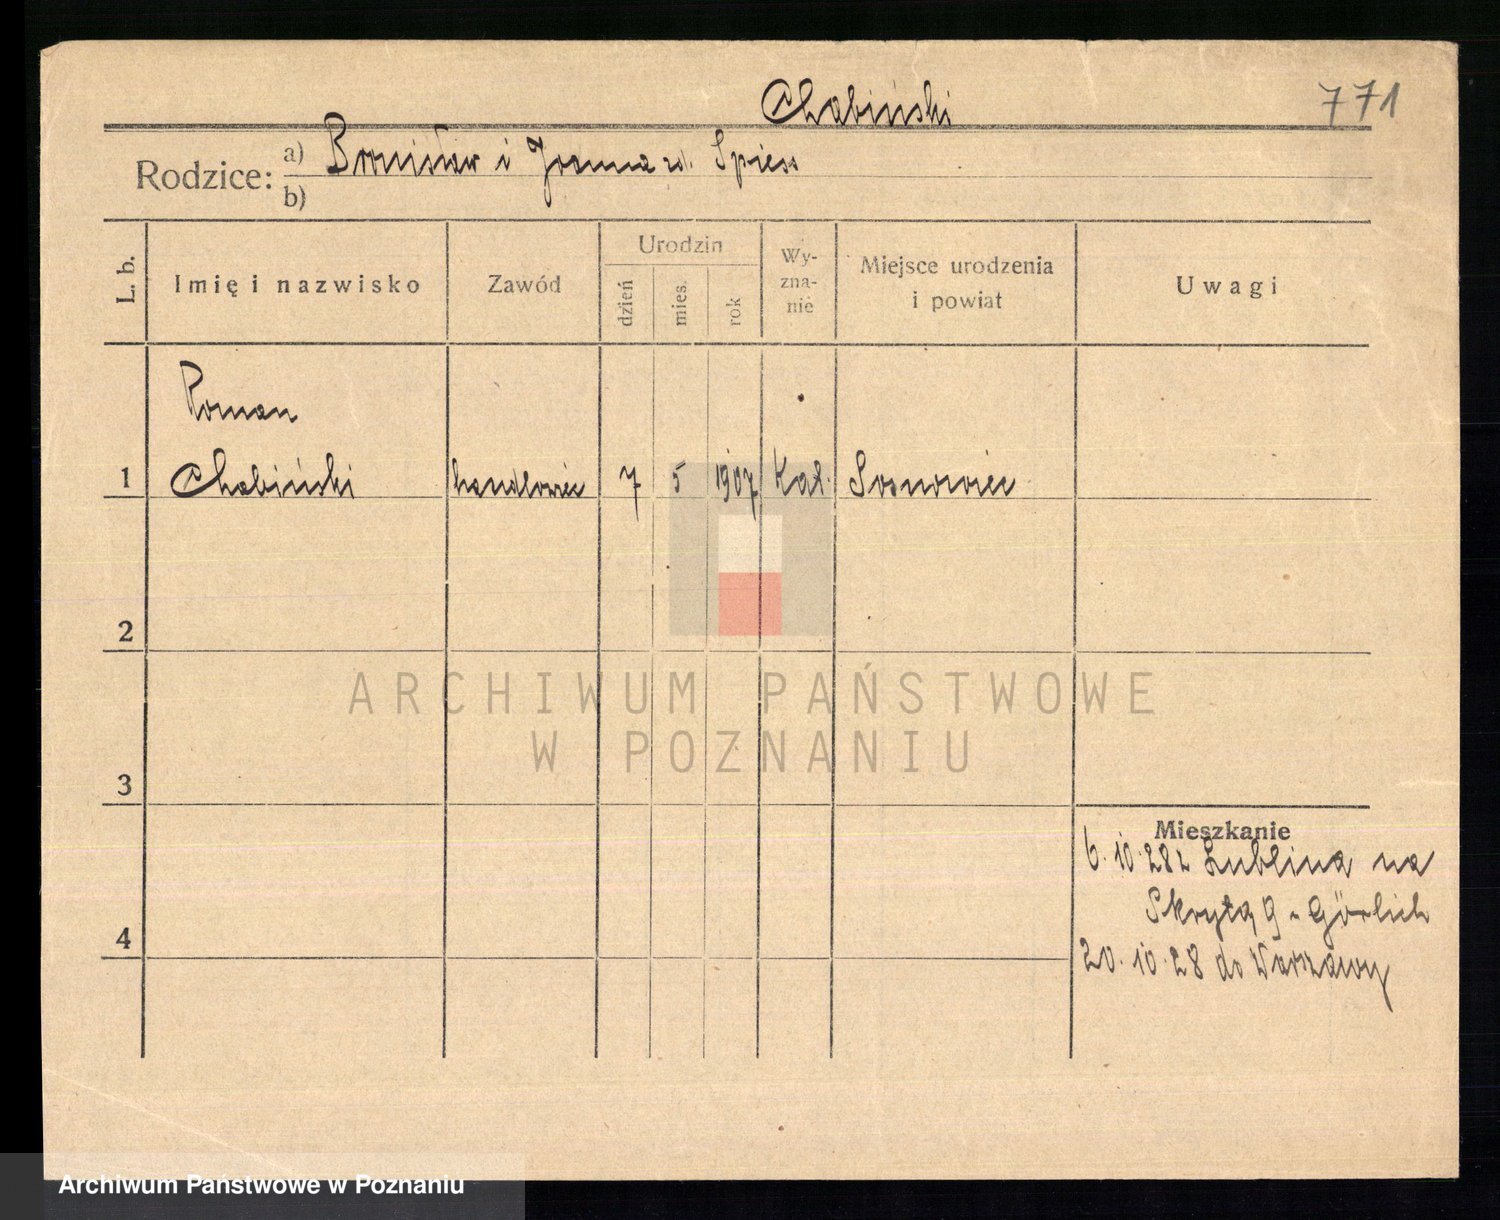 Chabiński
771
Rodzice: a) Bronisław i Joanna zd. Spiess
b)
L. b.
Imię i nazwisko
Zawód
Urodzin
dzień
mies.
rok
Wy-
zna-
nie
Miejsce urodzenia
i powiat
Uwagi
Roman
1 Chabiński handlowiec 7 5 1907 Kat. Sosnowiec
2
ARCHIWUM PAŃSTWOWE
W POZNANIU
3
Mieszkanie
6.10.28 z Lublina na
Skrytą 9 u Görlich
4
20.10.28 do Warszawy
Archiwum Państwowe w Poznaniu